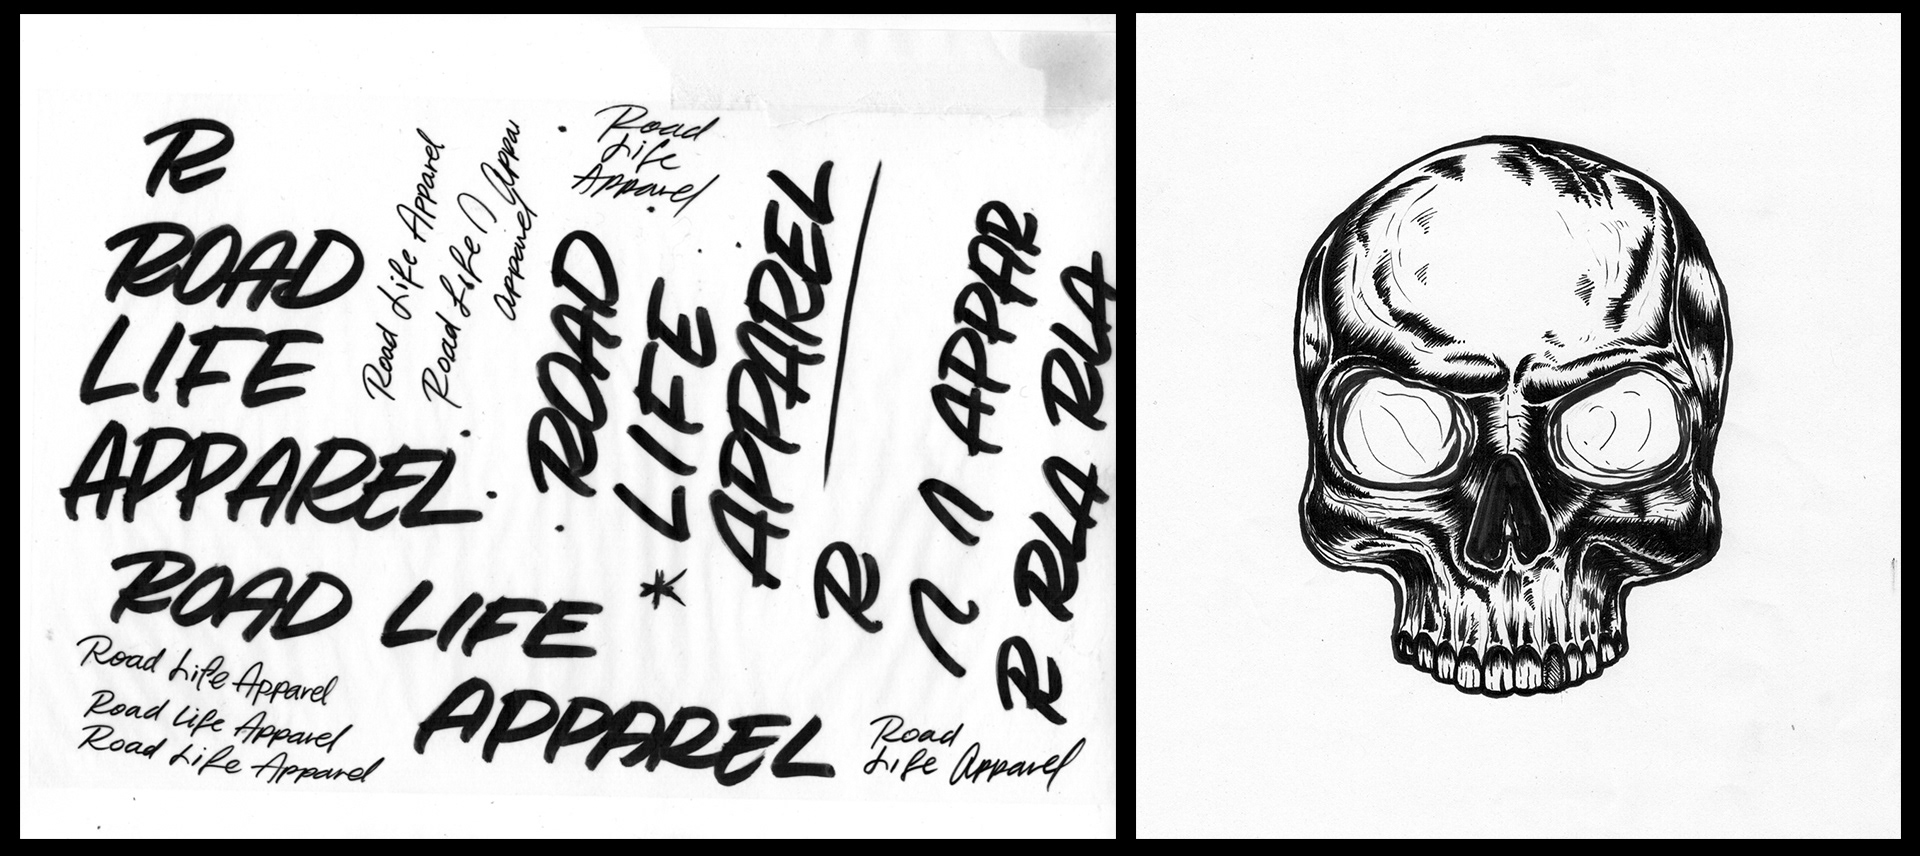 R
ROAD
LIFE
APPAREL.
ROAD LIFE
APPAREL
Road Life Apparel
Road Life Apparel
Road Life Apparel
Road Life Apparel
Road Life
Appa
apparel
Road
Life
Apparel
ROAD
LIFE
APPAREL
*
R
APPAR
R RLA RLA
Road
Life Apparel